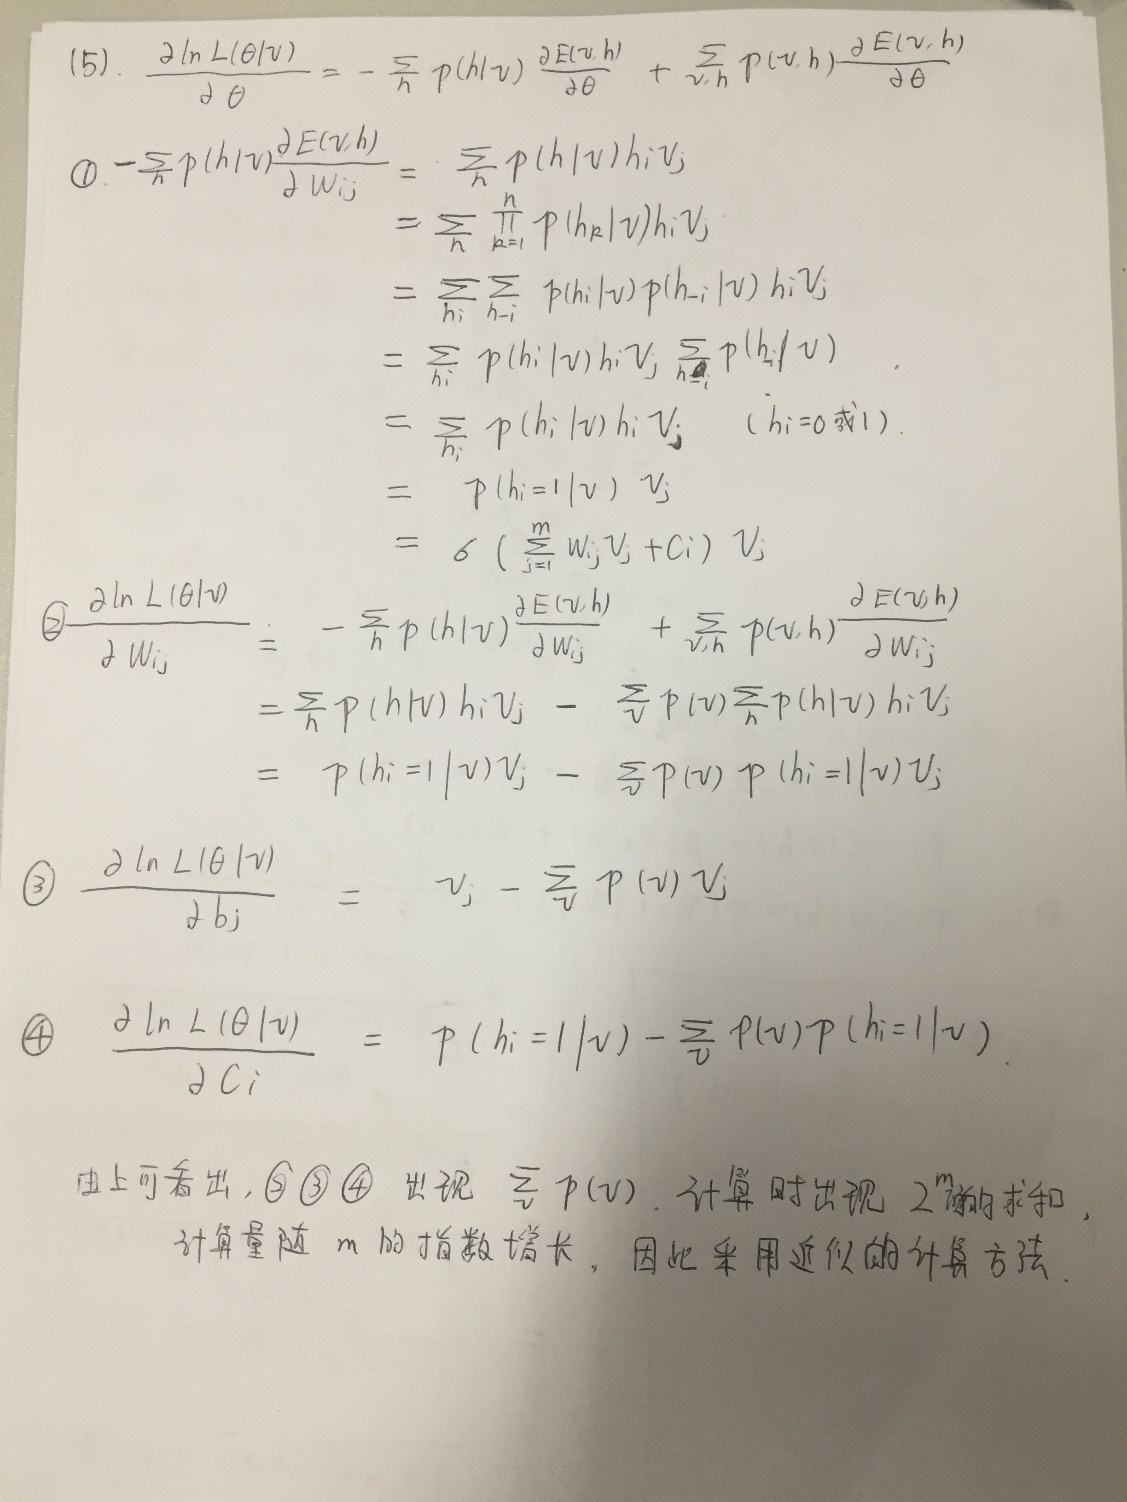 (5). ∂ln L(θ|v)/∂θ = - Σ_h p(h|v) ∂E(v,h)/∂θ + Σ_{v,h} p(v,h) ∂E(v,h)/∂θ
① -Σ_h p(h|v) ∂E(v,h)/∂w_{ij} = Σ_h p(h|v) h_i v_j
= Σ_h Π_{k=1}^n p(h_k|v) h_i v_j
= Σ_{h_i} Σ_{h_{-i}} p(h_i|v) p(h_{-i}|v) h_i v_j
= Σ_{h_i} p(h_i|v) h_i v_j Σ_{h_{-i}} p(h_{-i}|v)
= Σ_{h_i} p(h_i|v) h_i v_j (h_i=0或1).
= p(h_i=1|v) v_j
= σ(Σ_{j=1}^m w_{ij} v_j + c_i) v_j
② ∂ln L(θ|v)/∂w_{ij} = - Σ_h p(h|v) ∂E(v,h)/∂w_{ij} + Σ_{v,h} p(v,h) ∂E(v,h)/∂w_{ij}
= Σ_h p(h|v) h_i v_j - Σ_v p(v) Σ_h p(h|v) h_i v_j
= p(h_i=1|v) v_j - Σ_v p(v) p(h_i=1|v) v_j
③ ∂ln L(θ|v)/∂b_j = v_j - Σ_v p(v) v_j
④ ∂ln L(θ|v)/∂c_i = p(h_i=1|v) - Σ_v p(v) p(h_i=1|v).
由上可看出,②③④ 出现 Σ_v p(v). 计算时出现 2^m 的求和,
计算量随 m 的指数增长, 因此采用近似的计算方法.